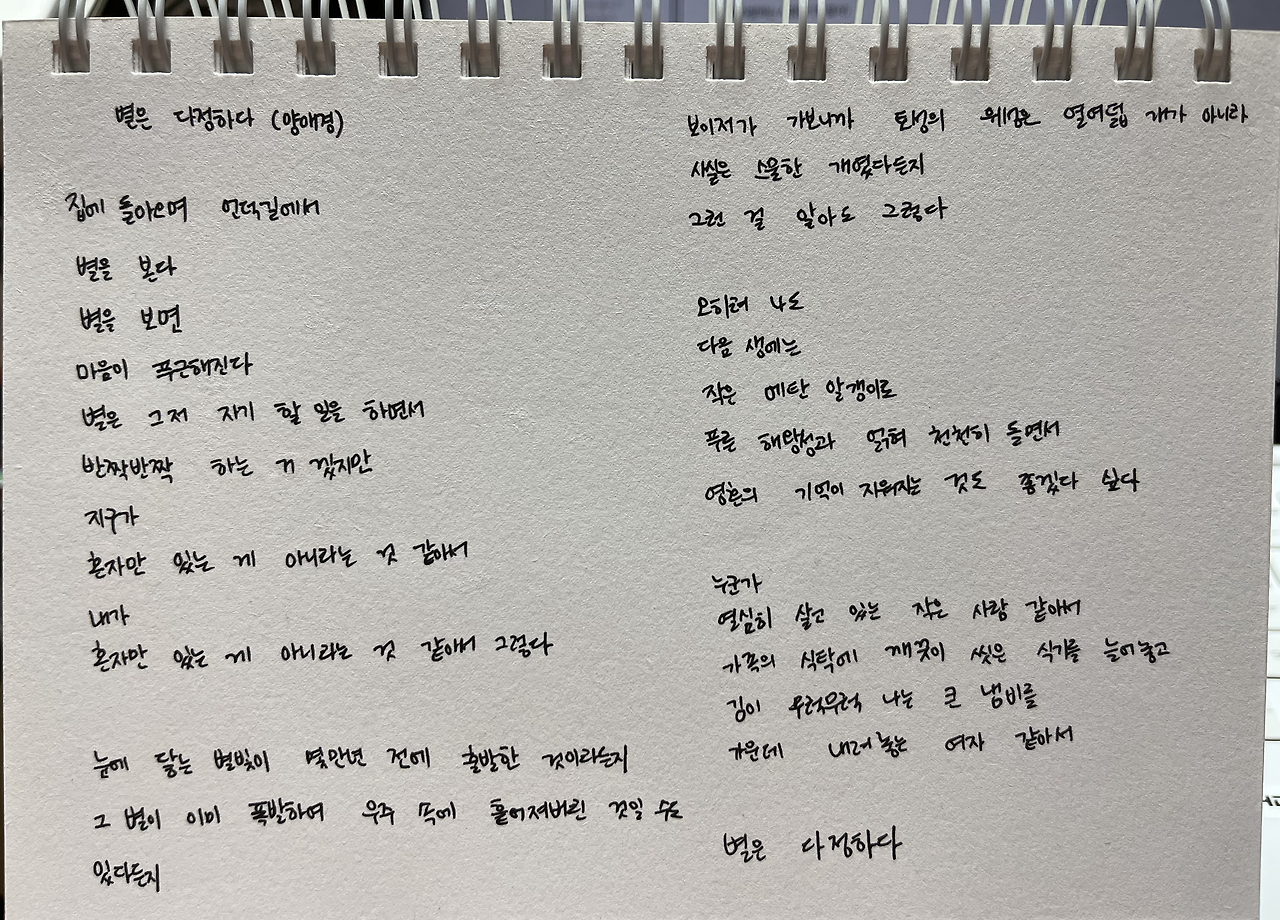 별은 다정하다 (양애경)
집에 돌아오며 언덕길에서
별을 본다
별을 보면
마음이 푸근해진다
별은 그저 자기 할 일을 하면서
반짝반짝 하는 거 겠지만
지구가
혼자만 있는 게 아니라는 것 같아서
내가
혼자만 있는 게 아니라는 것 같아서 그렇다
눈에 닿는 별빛이 몇만년 전에 출발한 것이라든지
그 별이 이미 폭발하여 우주 속에 흩어져버린 것일 수도
있다든지
보이저가 가보니까 토성의 위성은 열여덟 개가 아니라
사실은 스물한 개였다든지
그런 걸 알아도 그렇다
오히려 나도
다음 생에는
작은 메탄 알갱이로
푸른 해왕성과 얽혀 천천히 돌면서
영혼의 기억이 지워지는 것도 좋겠다 싶다
누군가
열심히 살고 있는 작은 사람 같아서
가족의 식탁에 깨끗이 씻은 식기를 늘어놓고
김이 무럭무럭 나는 큰 냄비를
가운데 내려놓는 여자 같아서
별은 다정하다